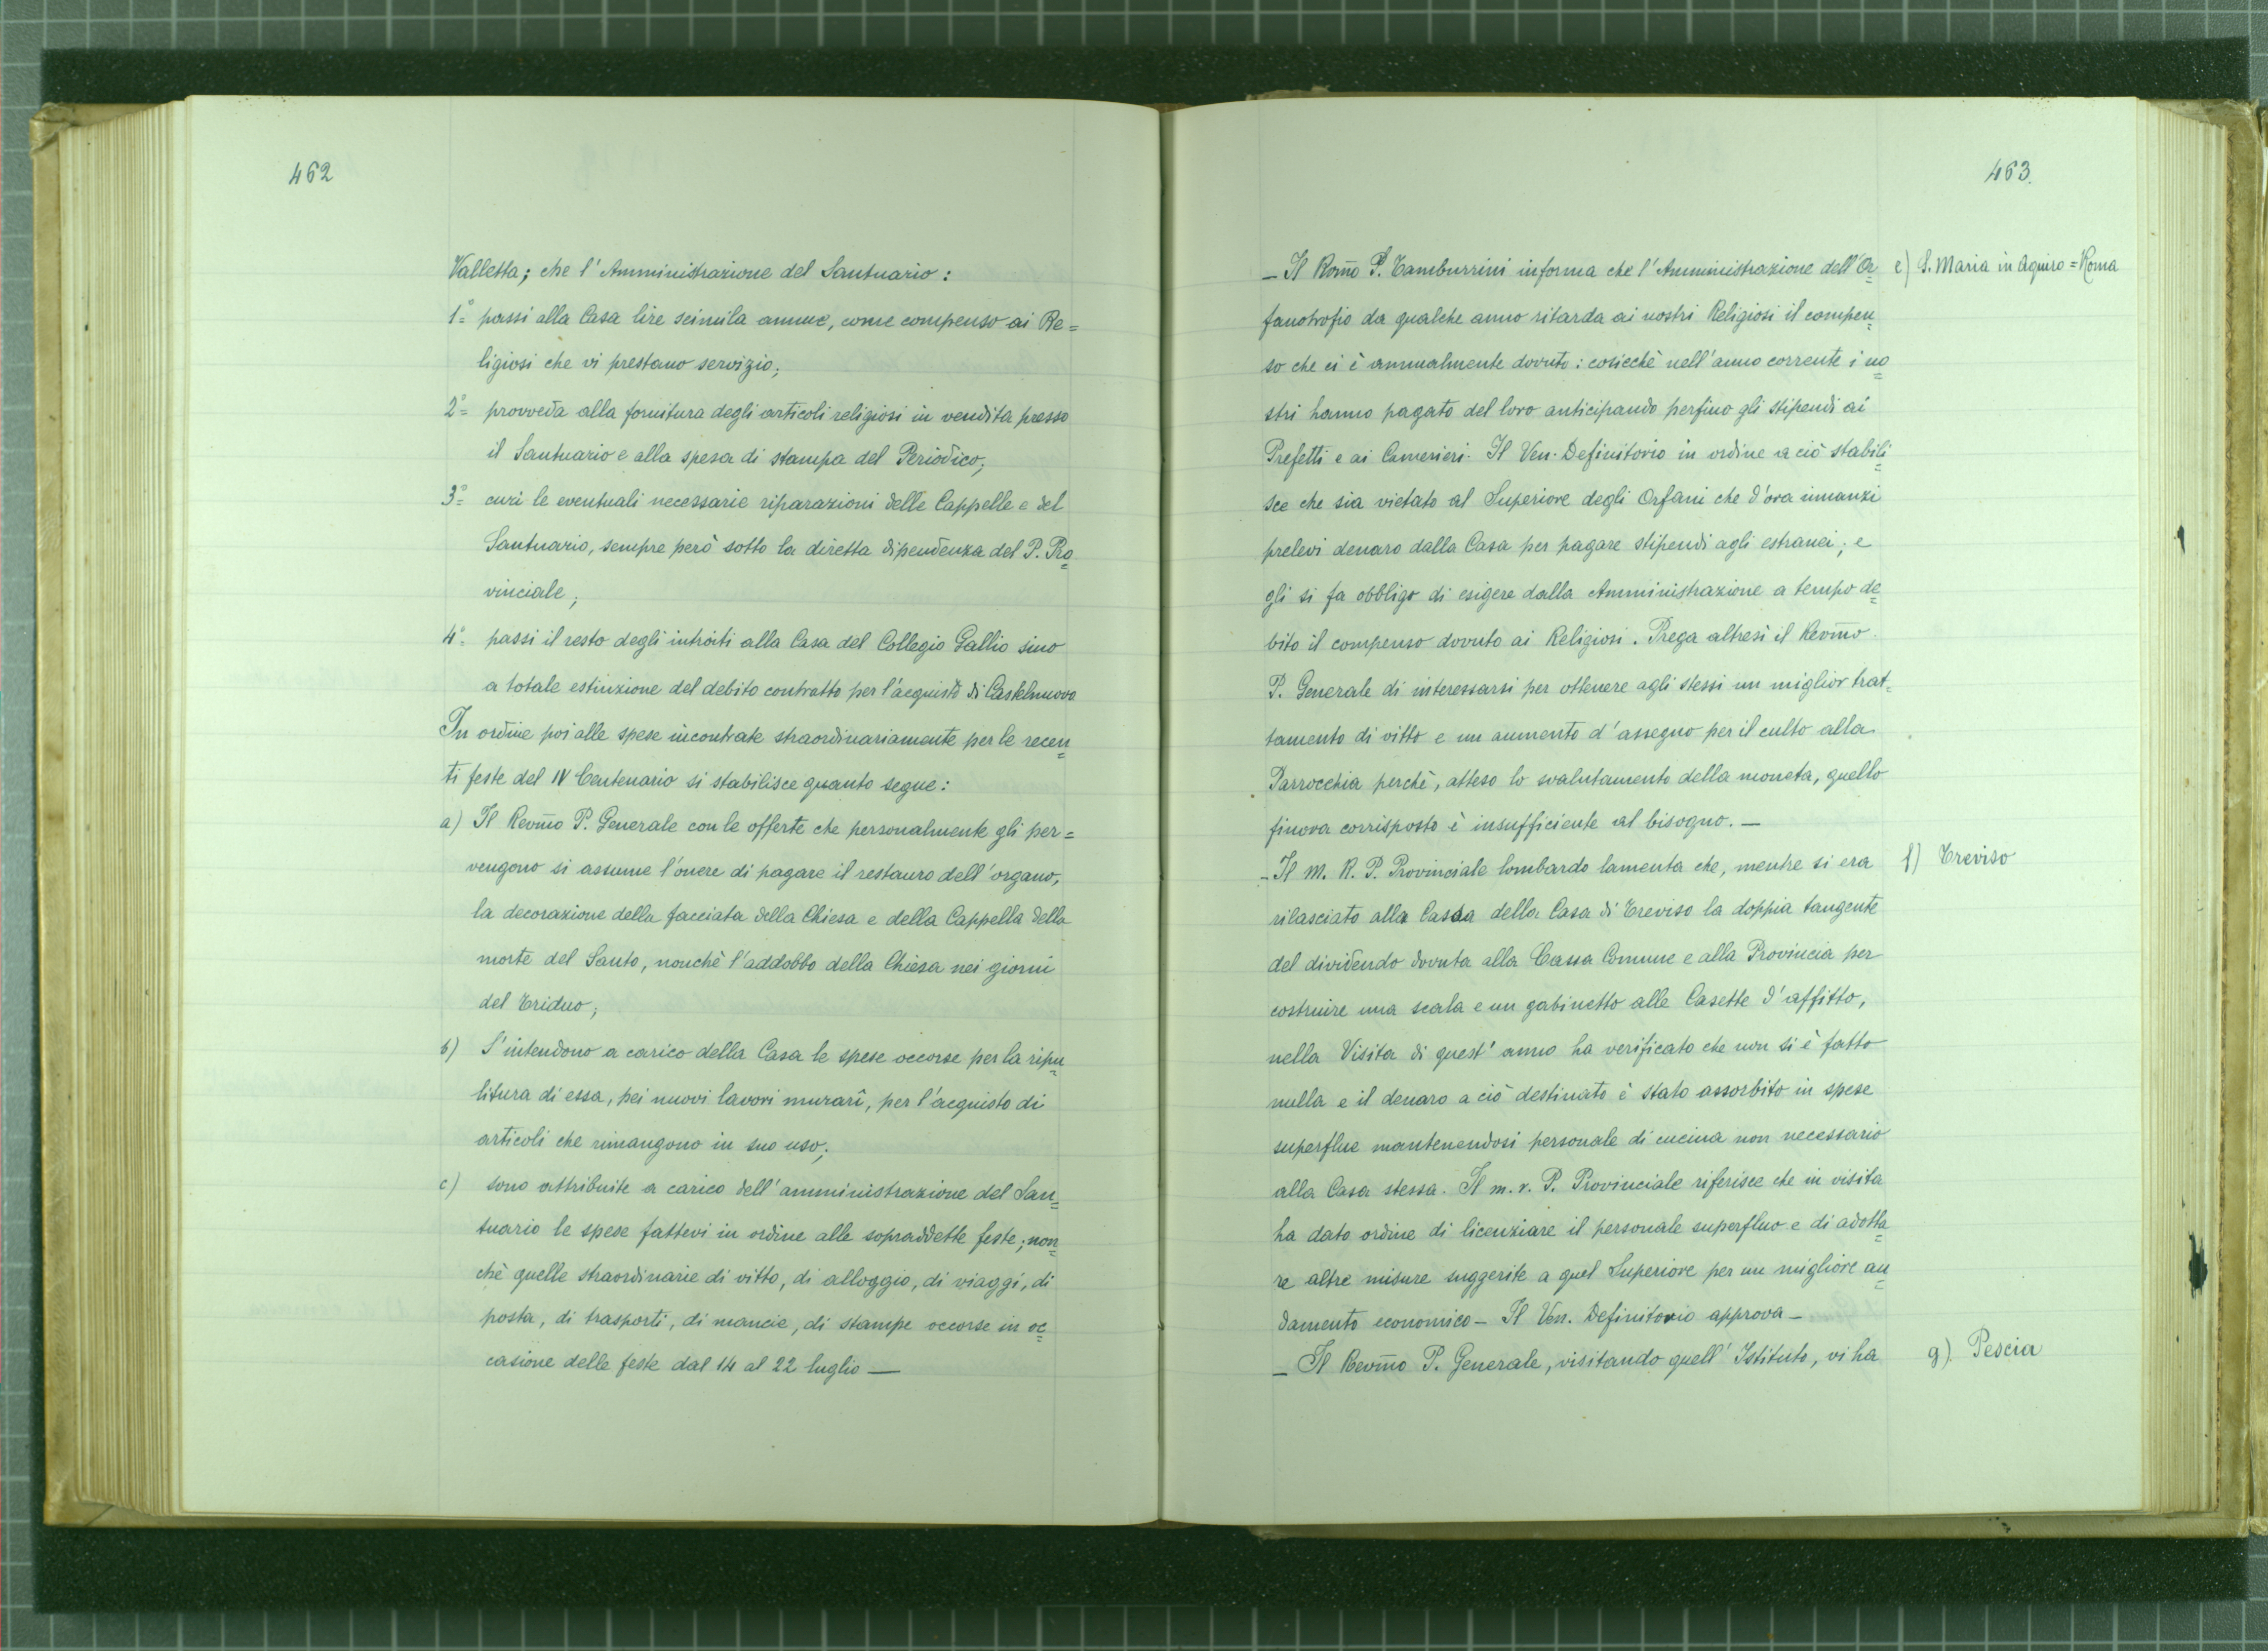 462
Valletta; che l'Amministrazione del Santuario:
1°= passi alla Casa lire seimila annue, come compenso ai Re=
ligiosi che vi prestano servizio;
2°= provveda alla fornitura degli articoli religiosi in vendita presso
il Santuario e alla spesa di stampa del Periodico;
3°= curi le eventuali necessarie riparazioni delle Cappelle e del
Santuario, sempre però sotto la diretta dipendenza del P. Pro=
vinciale;
4°= passi il resto degli introiti alla Casa del Collegio Gallio sino
a totale estinzione del debito contratto per l'acquisto di Castelnuovo
In ordine poi alle spese incontrate straordinariamente per le recen=
ti feste del IV Centenario si stabilisce quanto segue:
a) Il Revm̃o P. Generale con le offerte che personalmente gli per=
vengono si assume l'onere di pagare il restauro dell'organo,
la decorazione della facciata della Chiesa e della Cappella della
morte del Santo, nonchè l'addobbo della Chiesa nei giorni
del Triduo;
b) S'intendono a carico della Casa le spese occorse per la ripu=
litura di essa, pei nuovi lavori murarî, per l'acquisto di
articoli che rimangono in suo uso;
c) sono attribuite a carico dell'amministrazione del San=
tuario le spese fattevi in ordine alle sopraddette feste; non=
chè quelle straordinarie di vitto, di alloggio, di viaggi, di
posta, di trasporti, di mancie, di stampe occorse in oc=
casione delle feste dal 14 al 22 luglio —
463.
_ Il Rom̃o P. Tamburrini informa che l'Amministrazione dell'Or=
e) S. Maria in Aquiro = Roma
fanotrofio da qualche anno ritarda ai nostri Religiosi il compen=
so che ci è annualmente dovuto: cosicchè nell'anno corrente i no=
stri hanno pagato del loro anticipando perfino gli stipendi ai
Prefetti e ai Camerieri. Il Ven. Definitorio in ordine a ciò stabili=
sce che sia vietato al Superiore degli Orfani che d'ora innanzi
prelevi denaro dalla Casa per pagare stipendi agli estranei; e
gli si fa obbligo di esigere dalla Amministrazione a tempo de=
bito il compenso dovuto ai Religiosi. Prega altresì il Revm̃o
P. Generale di interessarsi per ottenere agli stessi un miglior trat=
tamento di vitto e un aumento d'assegno per il culto alla
Parrocchia perchè, atteso lo svalutamento della moneta, quello
finora corrisposto è insufficiente al bisogno. —
_ Il M. R. P. Provinciale lombardo lamenta che, mentre si era
f) Treviso
rilasciato alla Cassa della Casa di Treviso la doppia tangente
del dividendo dovuta alla Cassa Comune e alla Provincia per
costruire una scala e un gabinetto alle Casette d'affitto,
nella Visita di quest'anno ha verificato che non si è fatto
nulla e il denaro a ciò destinato è stato assorbito in spese
superflue mantenendosi personale di cucina non necessario
alla Casa stessa. Il m. r. P. Provinciale riferisce che in visita
ha dato ordine di licenziare il personale superfluo e di adotta=
re altre misure suggerite a quel Superiore per un migliore an=
damento economico _ Il Ven. Definitorio approva _
_ Il Revm̃o P. Generale, visitando quell'Istituto, vi ha
g) Pescia